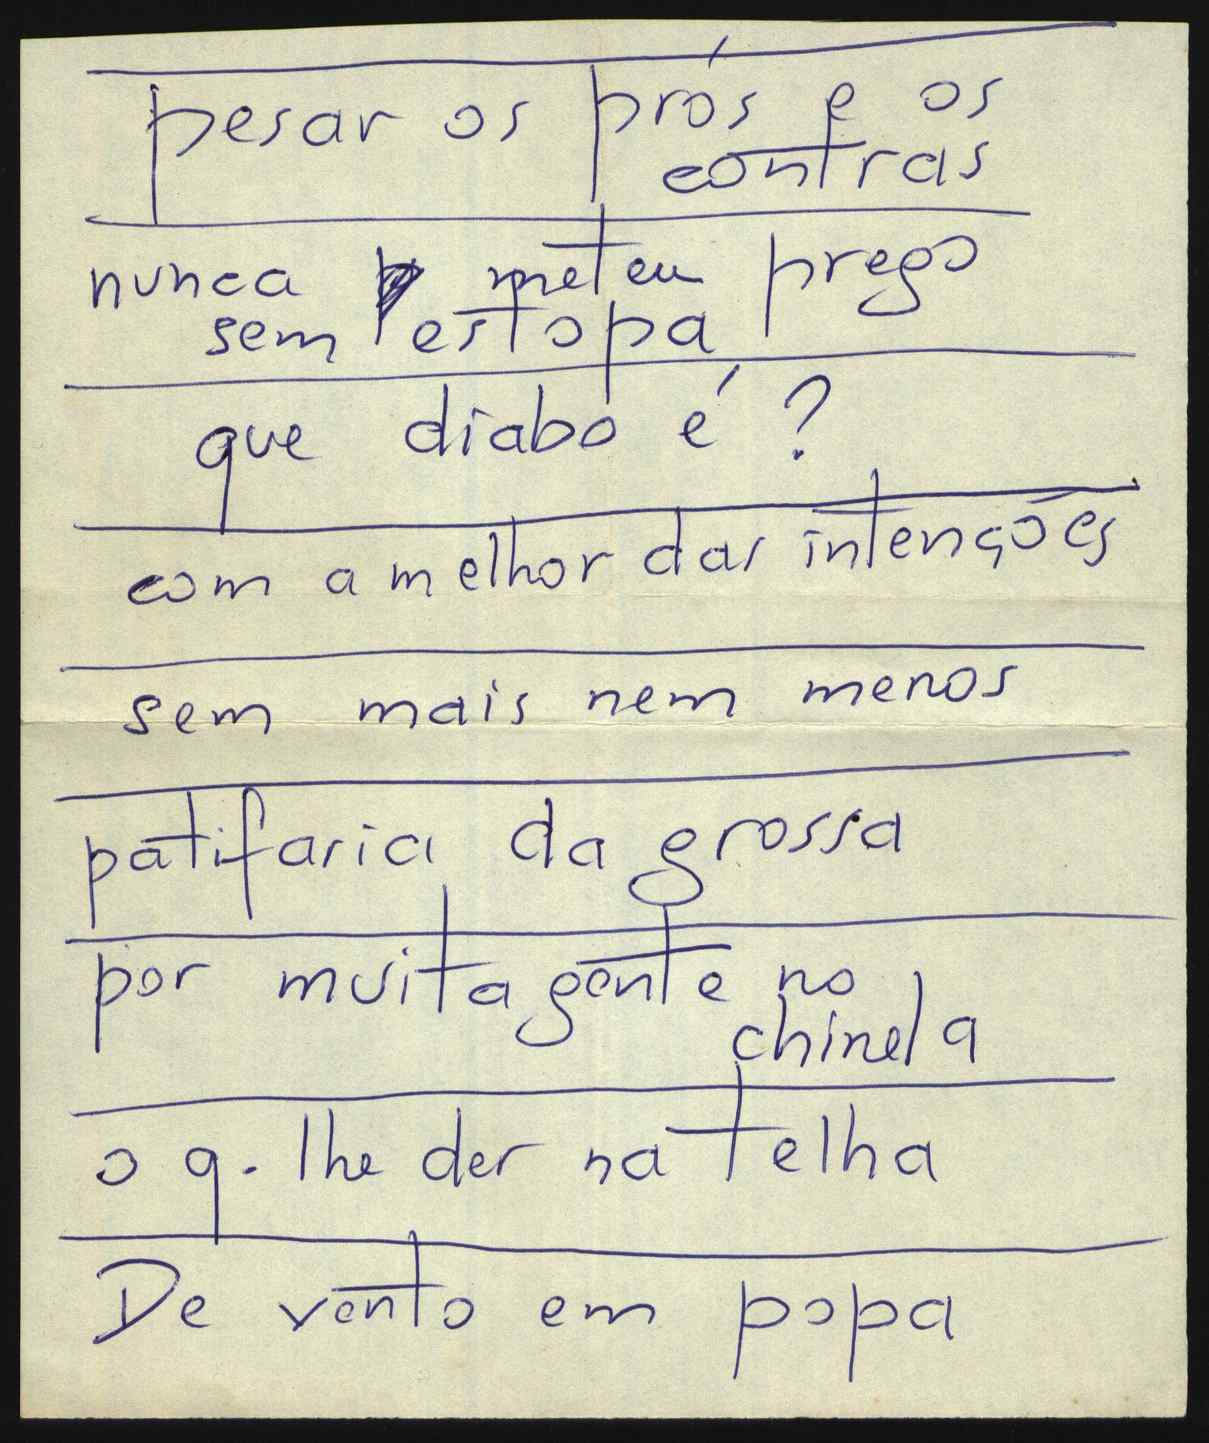 pesar os prós e os
contras
nunca meteu prego
sem estopa
que diabo é ?
com a melhor das intenções
sem mais nem menos
patifaria da grossa
por muita gente no
chinela
o q. lhe der na telha
De vento em popa